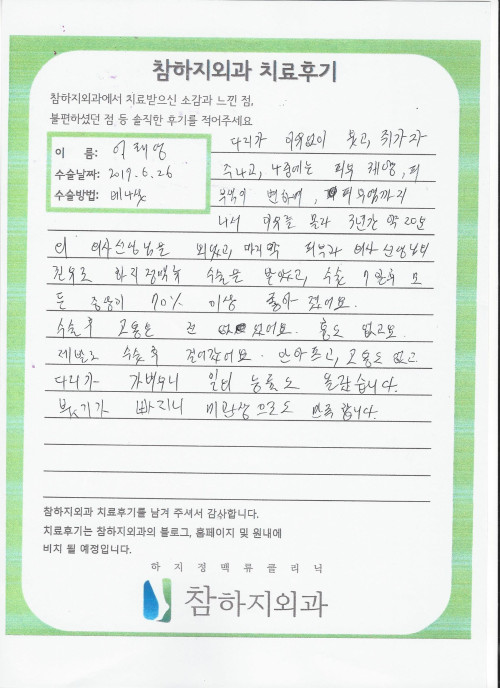 참하지외과 치료후기
참하지외과에서 치료받으신 소감과 느낀 점,
불편하셨던 점 등 솔직한 후기를 적어주세요
이 름: 이태영
수술날짜: 2017. 6. 26
수술방법: 베나실
다리가 이유없이 붓고, 쥐가자
주나고, 나중에는 피부 궤양, 피
부색이 변하며, 피부염까지
나서 이유를 몰라 3년간 약 20분
의 의사선생님을 뵈었고, 마지막 피부과 의사선생님의
권유로 하지정맥류 수술을 받았고, 수술 7일후 모
든 증상이 70% 이상 좋아 졌어요.
수술후 고통은 전 없었어요. 흉도 없고요.
제발로 수술후 걸어갔어요. 안아프고, 고통도 없고
다리가 가벼우니 일의 능률도 올랐습니다.
붓기가 빠지니 미관상으로도 만족합니다.
참하지외과 치료후기를 남겨 주셔서 감사합니다.
치료후기는 참하지외과의 블로그, 홈페이지 및 원내에
비치 될 예정입니다.
하지정맥류클리닉
참하지외과